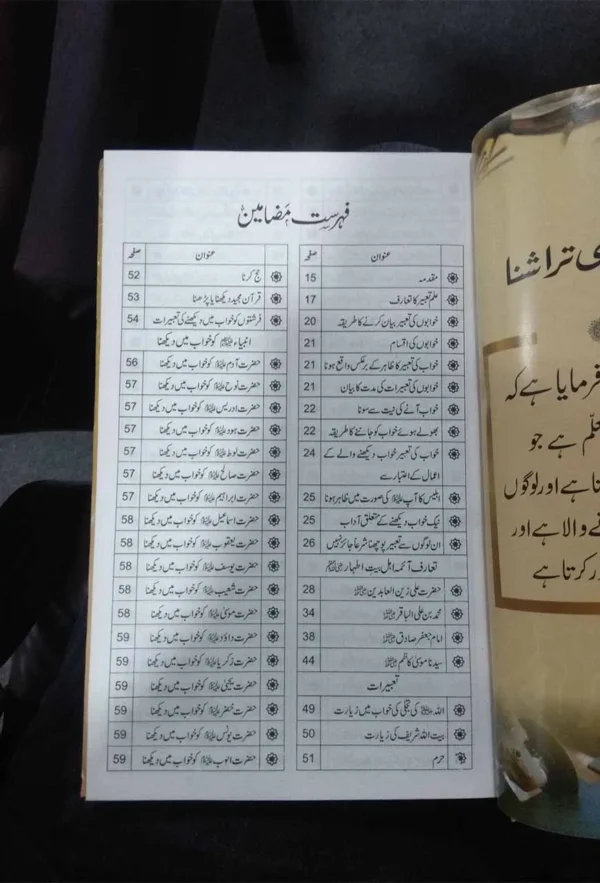 فہرست مضامین
عنوان صفحہ
مقدمہ 15
علم تعبیر کا تعارف 17
خوابوں کی تعبیر بیان کرنے کا طریقہ 20
خوابوں کی اقسام 21
خواب کی تعبیر کا ظاہر کے برعکس واقع ہونا 21
خوابوں کی تعبیرات کی مدت کا بیان 21
خواب آنے کی نیت سے سونا 22
بھولے ہوئے خواب کو جاننے کا طریقہ 22
خواب کی تعبیر خواب دیکھنے والے کے 24
اعمال کے اعتبار سے
ابلیس کا آپ ﷺ کی صورت میں ظاہر ہونا 25
نیک خواب دیکھنے کے متعلق آداب 25
ان لوگوں سے تعبیر پوچھنا شرعاً جائز نہیں 26
تعارف آئمہ اہل بیت اطہار
حضرت علی زین العابدین 28
محمد بن علی الباقر 34
امام جعفر صادق 38
سیدنا موسیٰ کاظم 44
تعبیرات
اللہ کی تجلی کی خواب میں زیارت 49
بیت اللہ شریف کی زیارت 50
حرم 51
عنوان صفحہ
حج کرنا 52
قرآن مجید دیکھنا یا پڑھنا 53
فرشتوں کو خواب میں دیکھنے کی تعبیرات 54
انبیاء کو خواب میں دیکھنا
حضرت آدم کو خواب میں دیکھنا 56
حضرت نوح کو خواب میں دیکھنا 57
حضرت ادریس کو خواب میں دیکھنا 57
حضرت ہود کو خواب میں دیکھنا 57
حضرت لوط کو خواب میں دیکھنا 57
حضرت صالح کو خواب میں دیکھنا 57
حضرت ابراہیم کو خواب میں دیکھنا 57
حضرت اسماعیل کو خواب میں دیکھنا 58
حضرت یعقوب کو خواب میں دیکھنا 58
حضرت یوسف کو خواب میں دیکھنا 58
حضرت شعیب کو خواب میں دیکھنا 58
حضرت موسیٰ کو خواب میں دیکھنا 58
حضرت داؤد کو خواب میں دیکھنا 59
حضرت زکریا کو خواب میں دیکھنا 59
حضرت یحییٰ کو خواب میں دیکھنا 59
حضرت خضر کو خواب میں دیکھنا 59
حضرت یونس کو خواب میں دیکھنا 59
حضرت ایوب کو خواب میں دیکھنا 59
تراشنا
فرمایا ہے کہ
ہے جو
ہے اور لوگوں
والا ہے اور
کرتا ہے